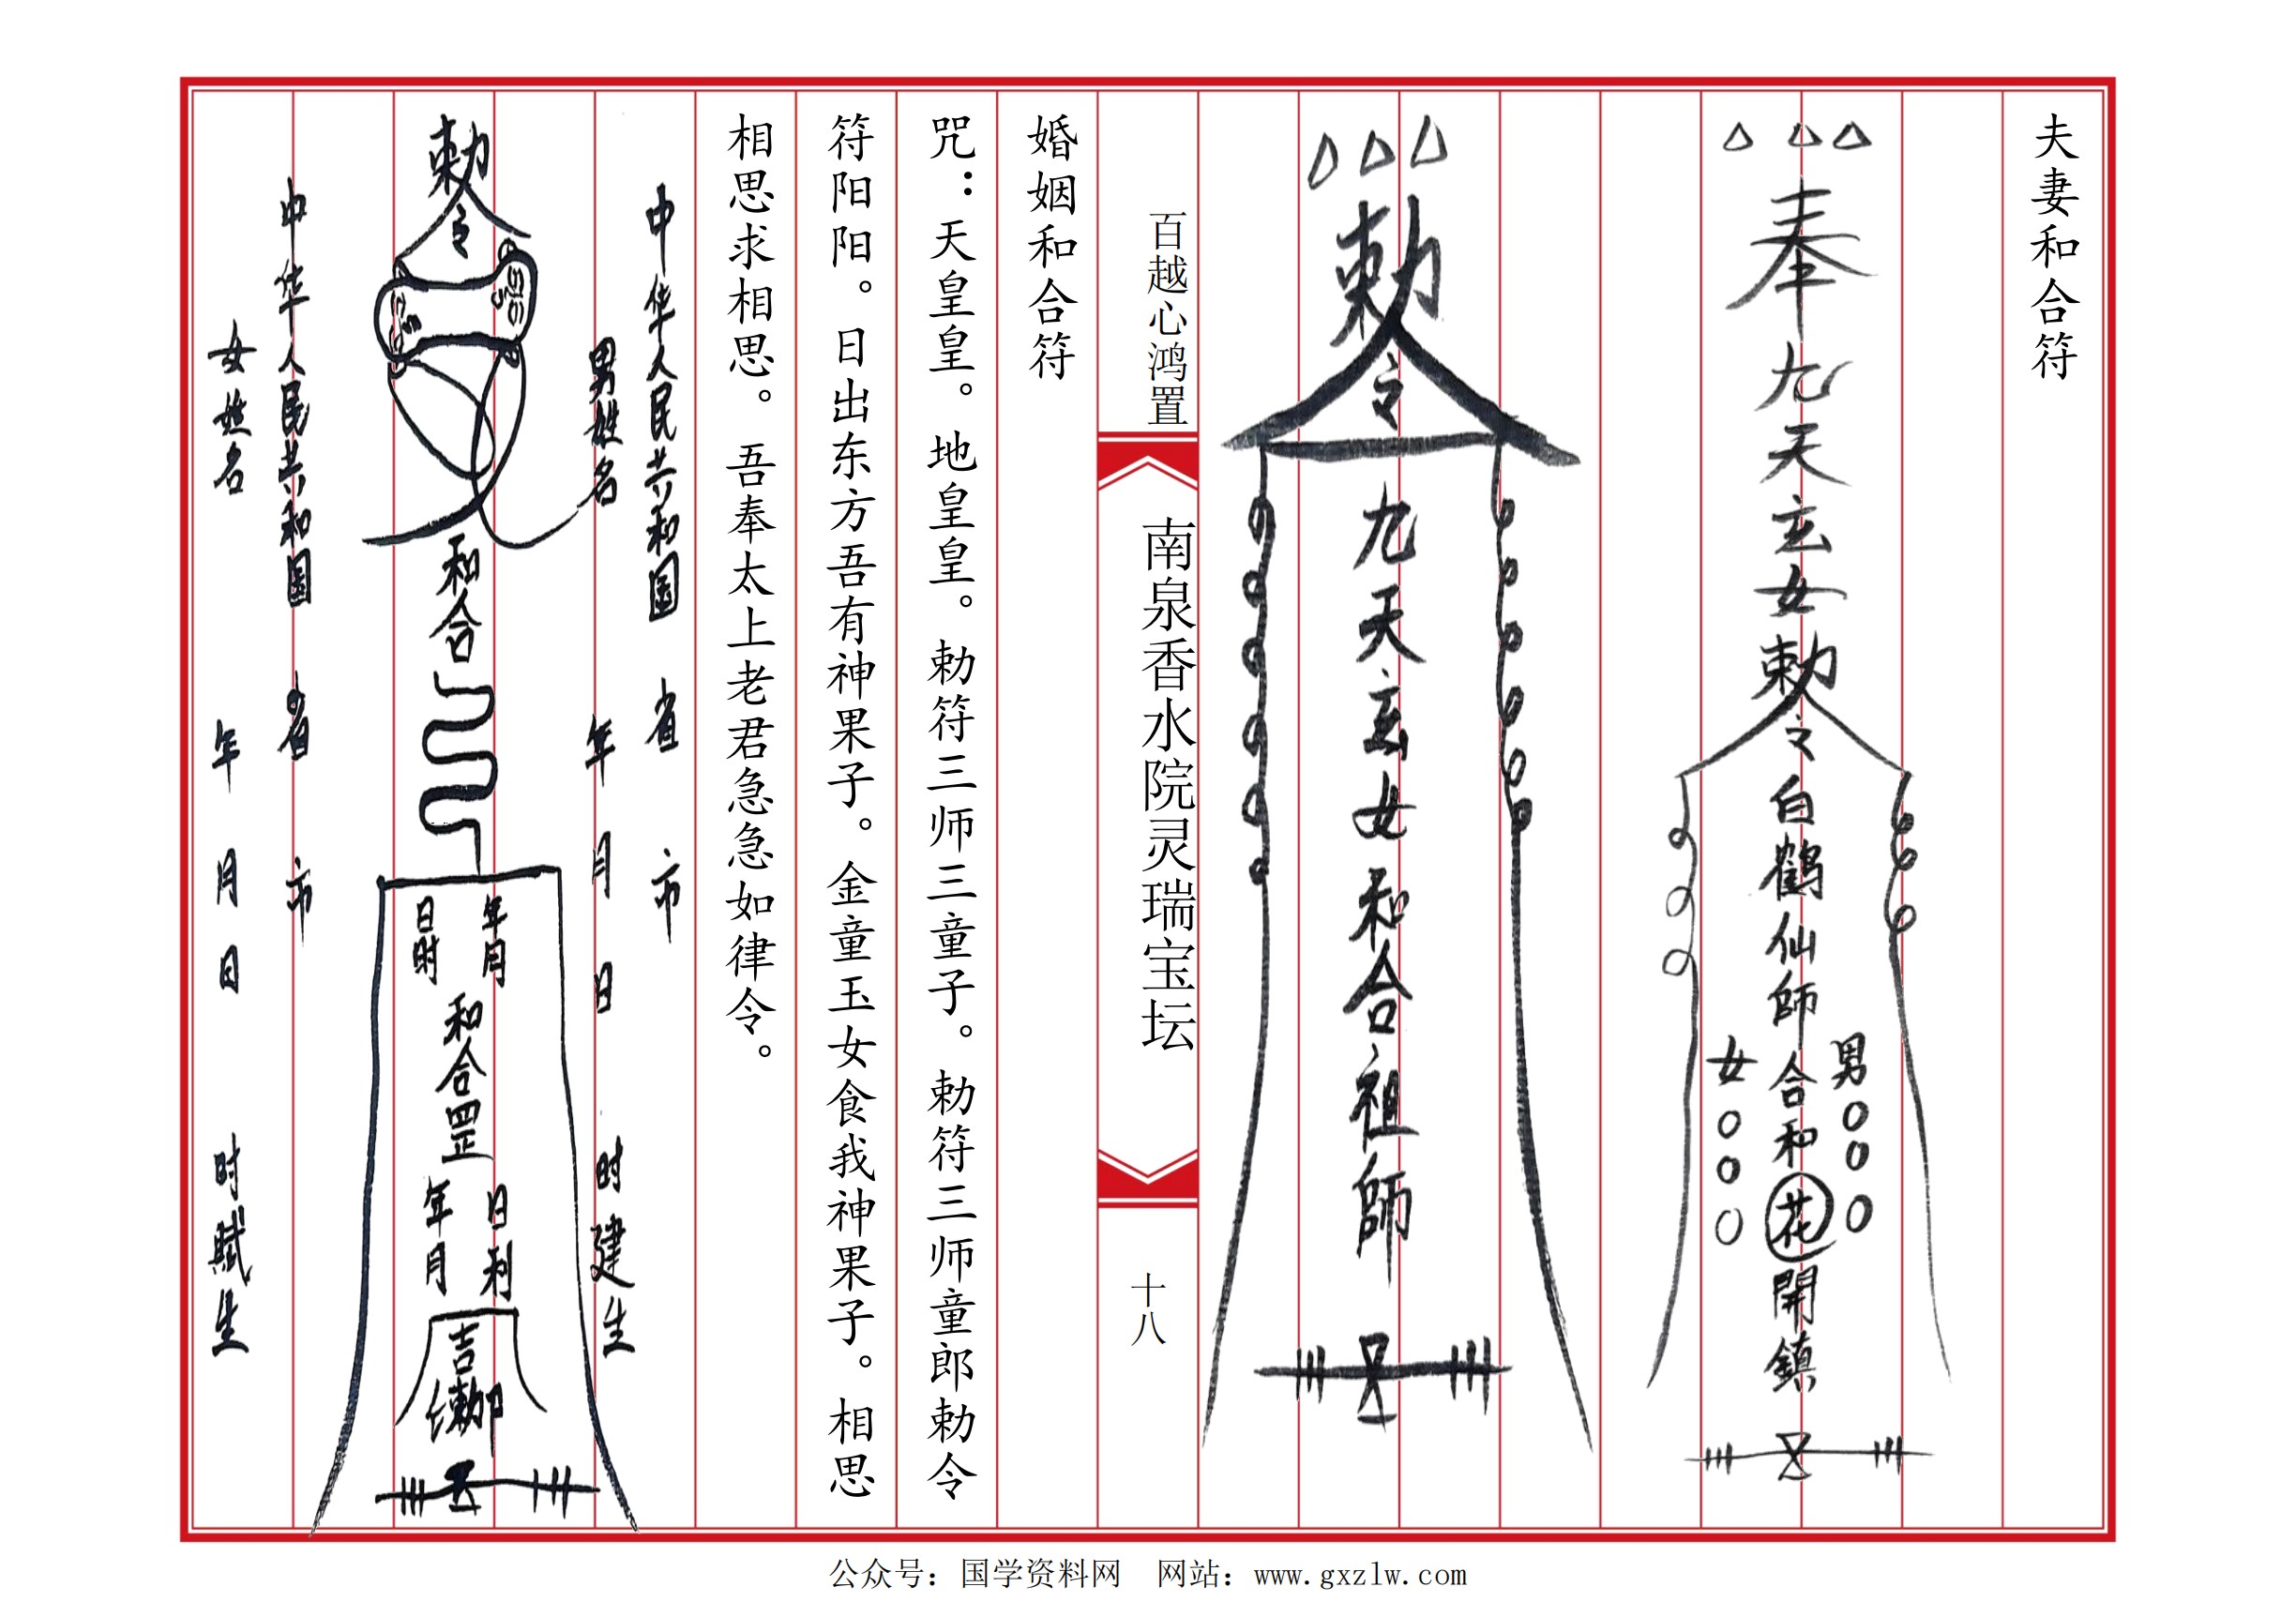 夫妻和合符
奉九天玄女勅令白鶴仙師合和花開鎮
男
女
勅令九天玄女和合祖師
百越心鸿置
南泉香水院灵瑞宝坛
十八
婚姻和合符
咒：天皇皇。地皇皇。勅符三师三童子。勅符三师童郎勅令
符阳阳。日出东方吾有神果子。金童玉女食我神果子。相思
相思求相思。吾奉太上老君急急如律令。
中华人民共和国 省 市
男姓名 年 月 日 时建生
勅令
和合
年月
日时
和合罡
日利
年月
吉
中华人民共和国 省 市
女姓名 年 月 日 时赋生
公众号：国学资料网 网站：www.gxzlw.com